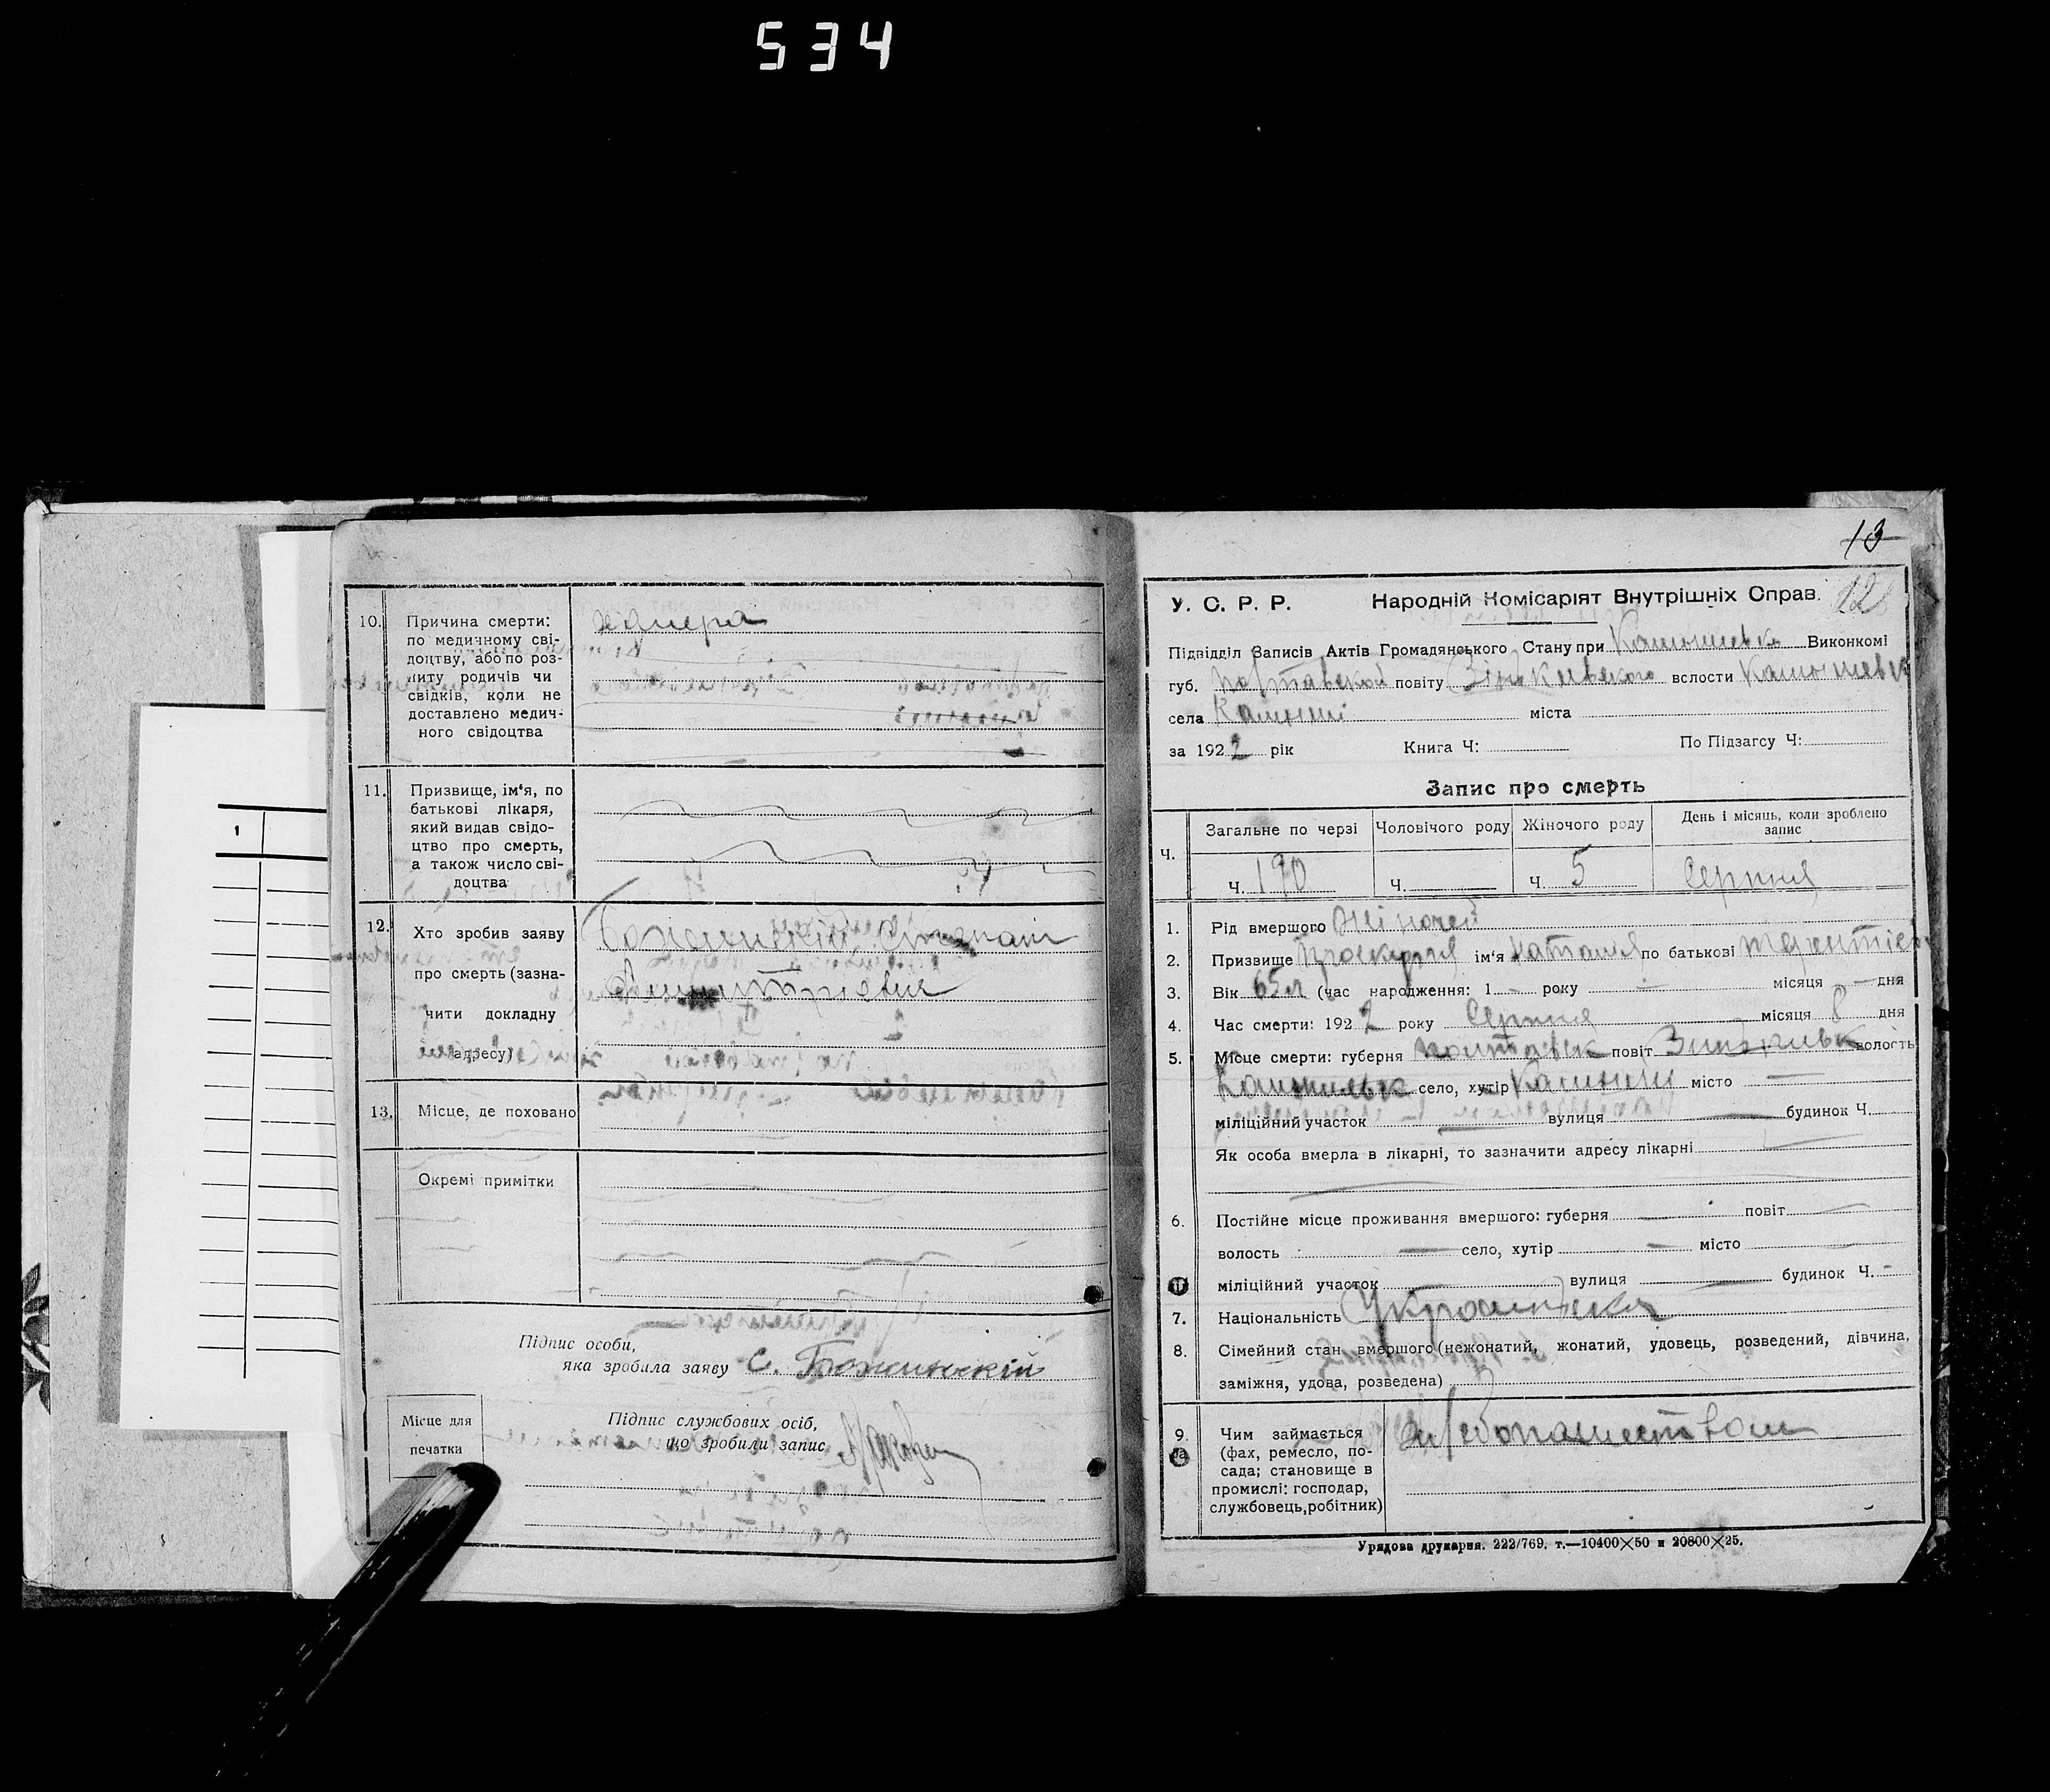 534
10. Причина смерти:
по медичному сві-
доцтву, або по роз-
питу родичів чи
свідків, коли не
доставлено медич-
ного свідоцтва
11. Призвище, ім'я, по
батькові лікаря,
який видав свідо-
цтво про смерть,
а також число сві-
доцтва
12. Хто зробив заяву
про смерть (зазна-
чити докладну
адресу)
13. Місце, де поховано
Окремі примітки
Підпис особи,
яка зробила заяву С. Божинскій
Місце для
печатки
Підпис службових осіб,
що зробили запис
1
13
12
У. С. Р. Р. Народній Комісаріят Внутрішніх Справ.
Підвідділ Записів Актів Громадянського Стану при Виконкомі
губ. Полтавской повіту Зіньківского волости
села міста
за 1922 рік Книга Ч: По Підзагсу Ч:
Запис про смерть
Ч. Загальне по черзі Чоловічого роду Жіночого роду День і місяць, коли зроблено запис
Ч. 190 Ч. Ч. 5 Серпня
1. Рід вмершого Жіночей
2. Призвище Проскурня ім'я Наталія по батькові
3. Вік 65 л (час народження: 1 року місяця дня
4. Час смерти: 1922 року Серпня місяця 8 дня
5. Місце смерти: губерня Полтавск повіт Зиньківськ волость
село, хутір місто
міліційний участок вулиця будинок Ч.
Як особа вмерла в лікарні, то зазначити адресу лікарні
6. Постійне місце проживання вмершого: губерня повіт
волость село, хутір місто
міліційний участок вулиця будинок Ч.
7. Національність Украинска
8. Сімейний стан вмершого (нежонатий, жонатий, удовець, розведений, дівчина,
заміжня, удова, розведена)
9. Чим займається
(фах, ремесло, по-
сада; становище в
промислі: господар,
службовець, робітник)
хлебопашеством
Урядова друкарня. 222/769. т.—10400×50 и 20800×25.